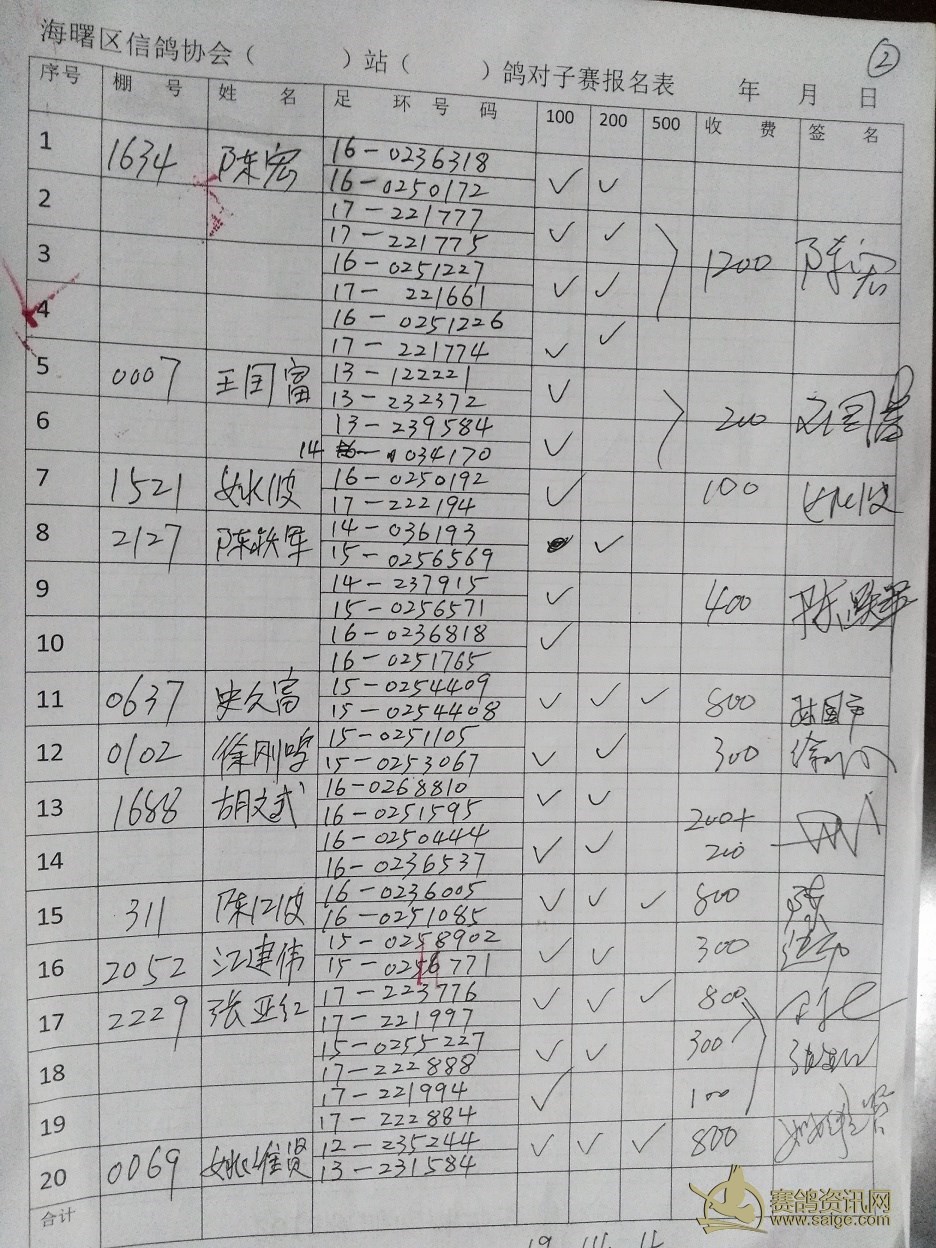 ②
海曙区信鸽协会（ ）站（ ）鸽对子赛报名表 年 月 日
序号 棚号 姓名 足环号码 100 200 500 收费 签名
1 1634 陈宏 16-0236318
16-0250172 ✓ ✓
2 17-221777
17-221775 ✓ ✓
3 16-0251227 1200 陈宏
17-221661 ✓ ✓
4 16-0251226
17-221774 ✓ ✓
5 0007 王国富 13-122221
13-232372 ✓
6 13-239584 200
14 034170 ✓
7 1521 姚水波 16-0250192
17-222194 ✓ 100
8 2127 陈轶军 14-036193
15-0256569 ✓
9 14-237915
15-0256571 ✓ 400
10 16-0236818
16-0251765 ✓
11 0637 史久富 15-0254409
15-0254408 ✓ ✓ ✓ 800
12 0102 徐刚鸣 15-0251105
15-0253067 ✓ ✓ 300
13 1688 胡文武 16-0268810
16-0251595 ✓ ✓ 200+
14 16-0250444
16-0236537 ✓ ✓ 200
15 311 陈江波 16-0236005
16-0251085 ✓ ✓ ✓ 800
16 2052 江建伟 15-0258902
15-0256771 ✓ ✓ 300
17 2229 张亚红 17-223776
17-221997 ✓ ✓ ✓ 800
18 15-0255227
17-222888 ✓ ✓ 300
19 17-221994
17-222884 ✓ 100
20 0069 姚维贤 12-235244
13-231584 ✓ ✓ ✓ 800
合计
赛鸽资讯网
www.saige.com